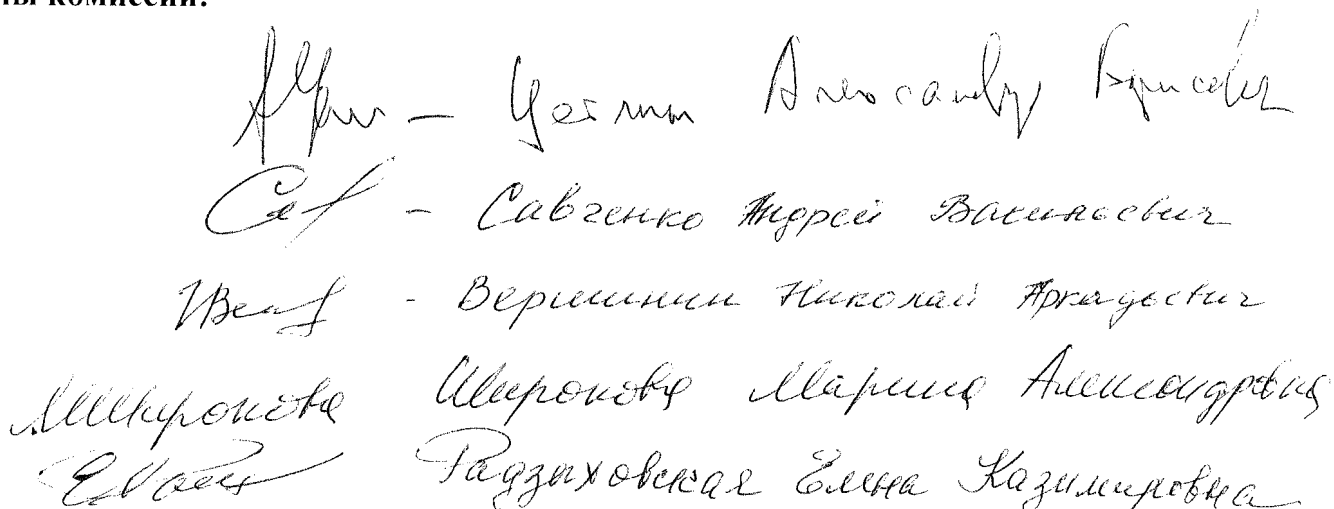 комиссии:
Александр Борисович
Савченко Андрей Васильевич
Вершинин Николай Аркадьевич
МШирокова Широкова Марина Александровна
Радзыховская Елена Казимировна